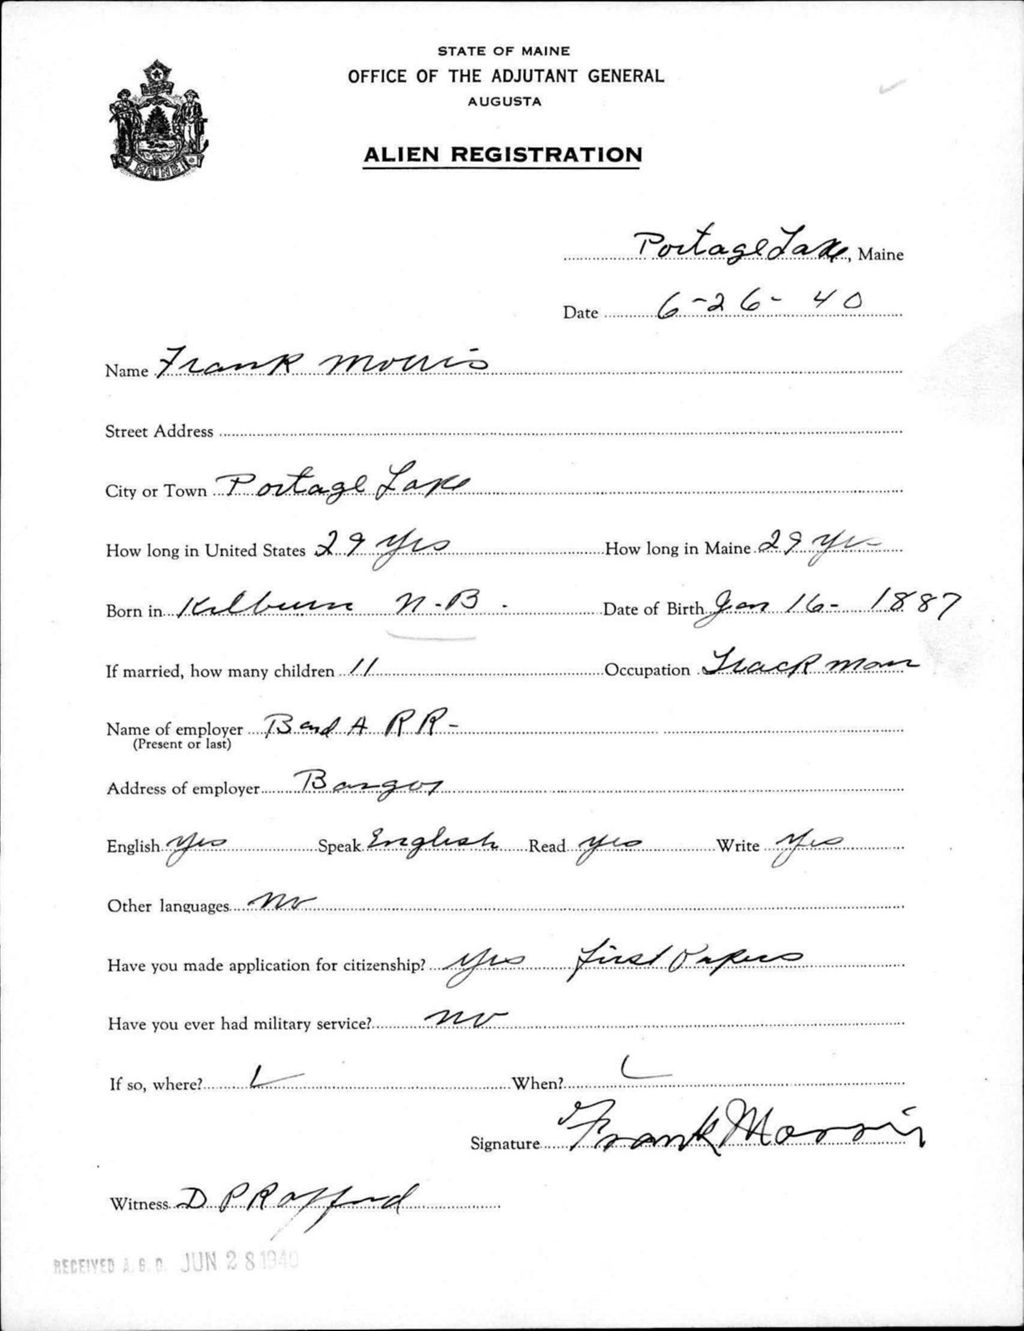 STATE OF MAINE
OFFICE OF THE ADJUTANT GENERAL
AUGUSTA
ALIEN REGISTRATION
MAINE
Portage Lake, Maine
Date 6-26-40
Name Frank Morris
Street Address
City or Town Portage Lake
How long in United States 29 Yrs How long in Maine 29 Yrs
Born in Kilburn N-B. Date of Birth Jan 16-1887
If married, how many children 11 Occupation Track man
Name of employer B and A RR-
(Present or last)
Address of employer Bangor
English Yes Speak English Read Yes Write Yes
Other languages No
Have you made application for citizenship? Yes First Papers
Have you ever had military service? No
If so, where? When?
Signature Frank Morris
Witness D P Rafford
RECEIVED A. G. O. JUN 28 1940